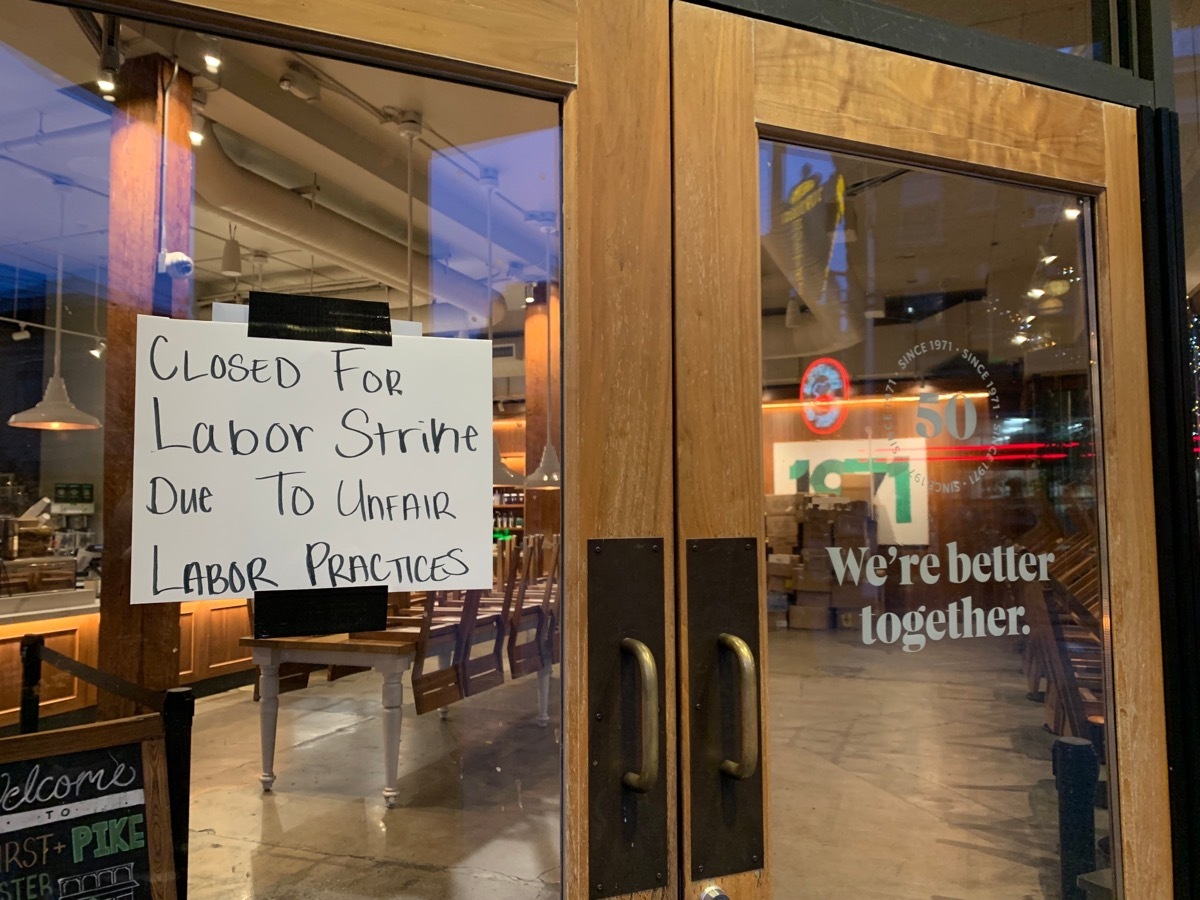 CLOSED FOR
Labor Strike
DUE TO UNFAIR
LABOR PRACTICES
SINCE 1971 · SINCE 1971 · SINCE 1971 · SINCE 1971 ·
50
1971
We're better
together.
Welcome
· TO ·
PIKE